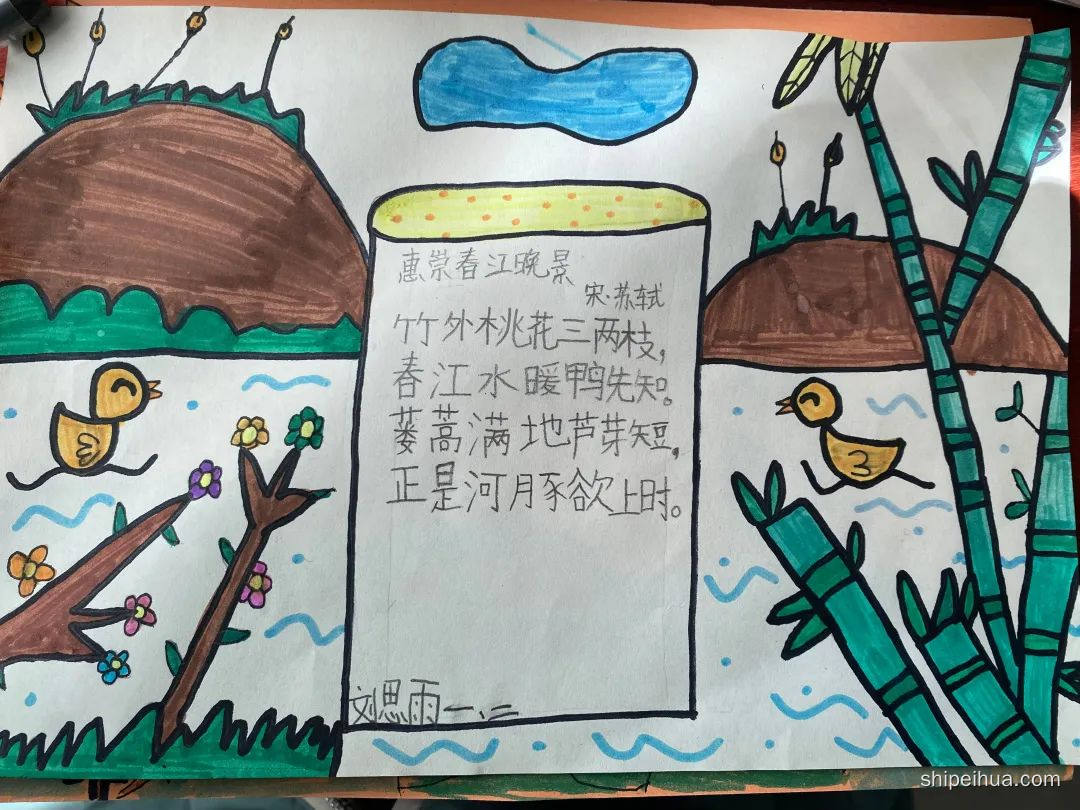 惠崇春江晚景
宋·苏轼
竹外桃花三两枝，
春江水暖鸭先知。
蒌蒿满地芦芽短，
正是河豚欲上时。
刘思雨一、二
shipeihua.com